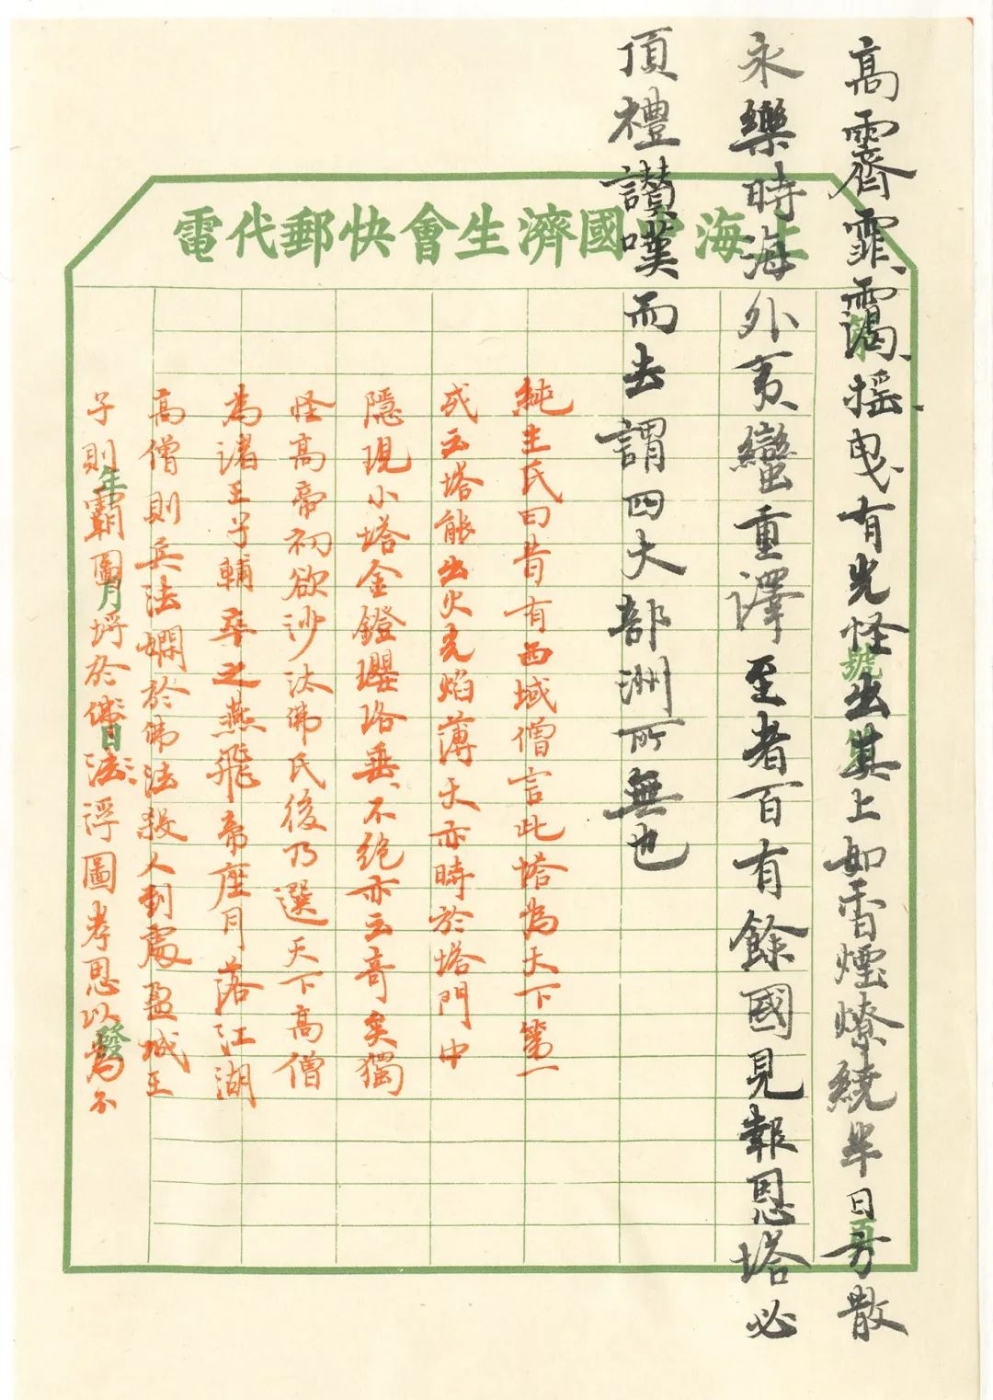 上海中國濟生會快郵代電
高霽霏、靄、搖、曳、有光怪出其上如香煙燎繞半日方散
永樂時海外夷蠻重譯至者百有餘國見報恩塔必
頂禮讚嘆而去謂四大部洲所無也
純生氏曰昔有西域僧言此塔為天下第一
或云塔能出火光焰薄天亦時於塔門中
隱現小塔金鐙瓔珞垂、不絕亦云奇矣獨
怪高帝初欲沙汰佛氏後乃選天下高僧
為諸王子輔卒之燕飛帝座月落江湖
高僧則兵法嫻於佛法殺人到處盈城王
子則霸圖埒於法浮圖孝恩以為不
號
頁
年月日發